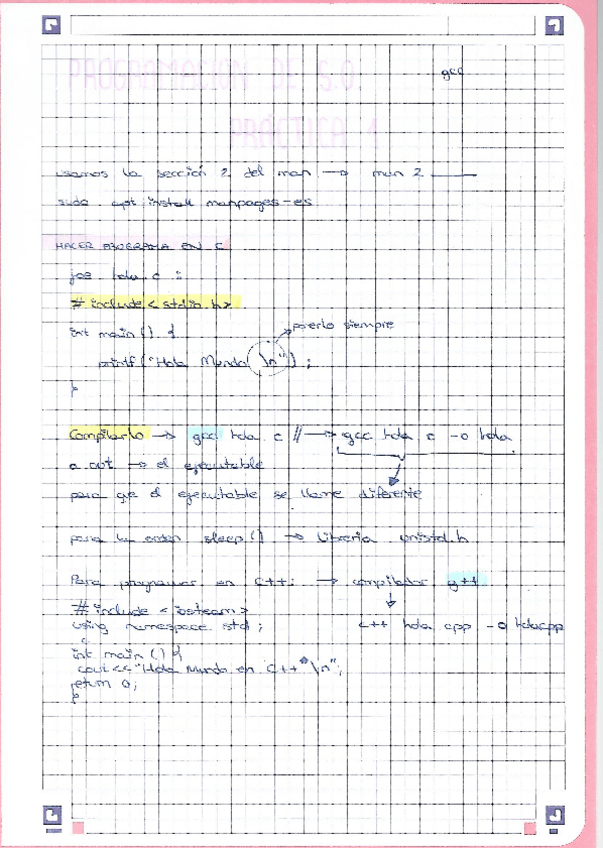 PROGRAMACION DE S.O.
gcc
PRÁCTICA 1
usamos la sección 2 del man → man 2 ____
sudo apt install manpages-es
HACER PROGRAMA EN C
joe hola.c :
#include <stdio.h>
int main() {
ponerlo siempre
printf("Hola Mundo \n");
}
Compilarlo → gcc hola.c // → gcc hola.c -o hola
a.out → el ejecutable
para que el ejecutable se llame diferente
para la orden sleep() → librería unistd.h
Para programar en C++: → compilador g++
#include <iosteam>
using namespace std;
c++ hola.cpp -o holacpp
int main() {
cout << "Hola Mundo en C++ \n";
return 0;
}